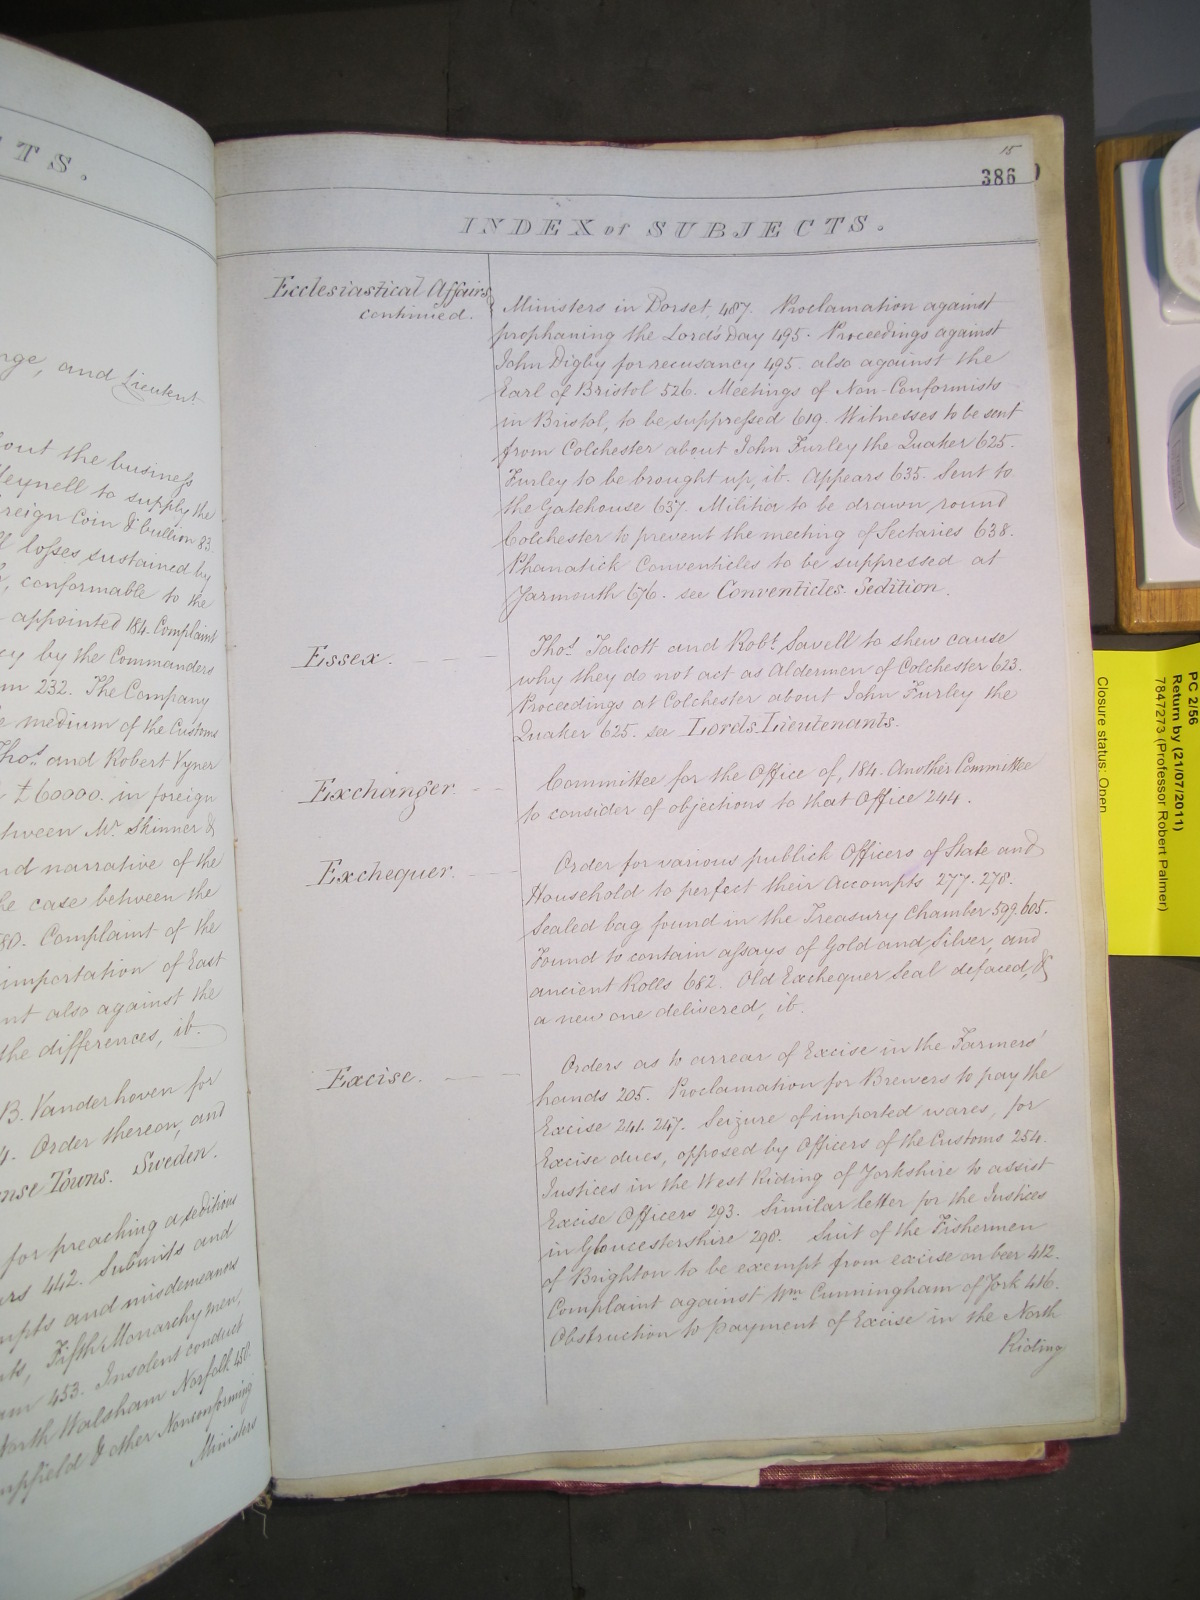 TS.
rge, and Lieutent
out the business
Meynell to supply the
reign Coin & bullion 83.
ll losses sustained by
conformable to the
appointed 184. Complaint
cy by the Commanders
232. The Company
medium of the Customs
Thos. and Robert Vyner
£60000. in foreign
tween Mr. Skinner &
nd narrative of the
he case between the
80. Complaint of the
importation of East
nt also against the
the differences, ib.
B. Vanderhoven for
4. Order thereon, and
nse Towns. Sweden.
for preaching a seditious
ars 442. Submits and
mpts and misdemeanors
ts, Fifth Monarchy men,
am 453. Insolent conduct
North Walsham Norfolk 456
mpfield & other Nonconforming
Ministers
15
386
INDEX of SUBJECTS.
Ecclesiastical Affairs
continued.
Ministers in Dorset, 487. Proclamation against
prophaning the Lord's Day 495. Proceedings against
John Digby for recusancy 495. also against the
Earl of Bristol 526. Meetings of Non-Conformists
in Bristol, to be suppressed 619. Witnesses to be sent
from Colchester about John Furley the Quaker 625.
Furley to be brought up, ib. Appears 635. Sent to
the Gatehouse 637. Militia to be drawn round
Colchester to prevent the meeting of Sectaries 638.
Phanatick Conventicles to be suppressed at
Yarmouth 676. see Conventicles. Sedition.
Essex.
Thos. Talcott and Robt. Savell to shew cause
why they do not act as Aldermen of Colchester 623.
Proceedings at Colchester about John Furley the
Quaker 625. see Lords Lieutenants.
Exchanger.
Committee for the Office of, 184. Another Committee
to consider of objections to that Office 244.
Exchequer.
Order for various publick Officers of State and
Household to perfect their Accompts 277. 278.
Sealed bag found in the Treasury Chamber 599. 605.
Found to contain assays of Gold and Silver, and
ancient Rolls 682. Old Exchequer Seal defaced, &
a new one delivered, ib.
Excise.
Orders as to arrear of Excise in the Farmers'
hands 205. Proclamation for Brewers to pay the
Excise 241. 247. Seizure of imported wares, for
Excise dues, opposed by Officers of the Customs 254.
Justices in the West Riding of Yorkshire to assist
Excise Officers 293. Similar letter for the Justices
in Gloucestershire 298. Suit of the Fishermen
of Brighton to be exempt from excise on beer 412.
Complaint against Wm. Cunningham of York 416.
Obstruction to payment of Excise in the North
Riding
PC 2/56
Return by (21/07/2011)
7847273 (Professor Robert Palmer)
Closure status: Open